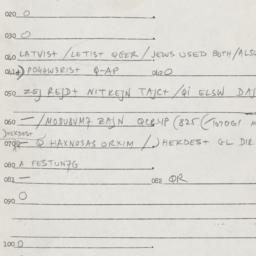 020 O
030 O
040 LATVIST / LETIST QGER / JEWS USED BOTH / ALSO
041 POGAW3RIST Q-AP 042 O
050 ZEJ REJD+ NITKEJN TAJCT / QI ELSW DAJ
060 — / MOBUBUM7 ZAJN
) HEKDES+
070 — Q HAXNOSAS ORXIM /,) HEKDES+ GL DIR
080 A FESTUN7G
081 — 082 QR
090 O
100 O